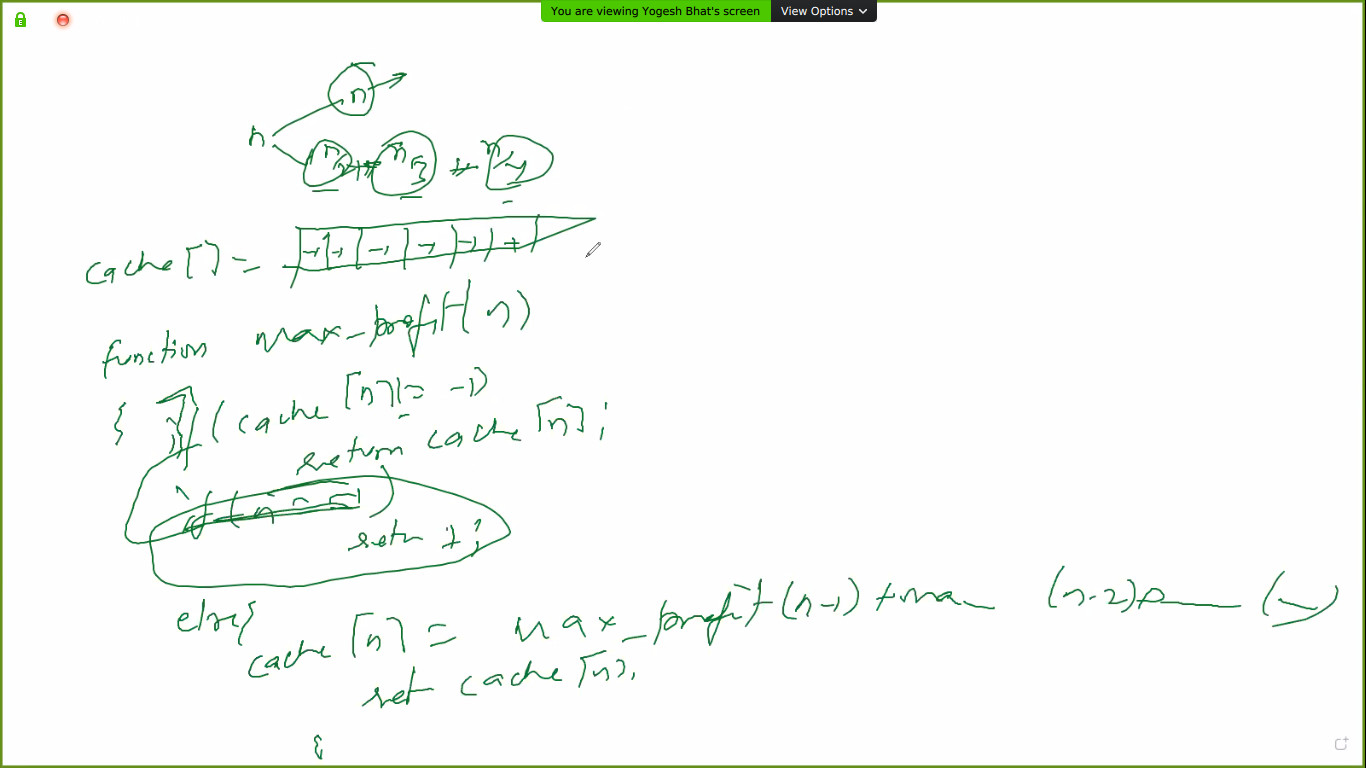 You are viewing Yogesh Bhat's screen View Options
n
n
n/2 + n/3 + n/4
cache[] = -1 -1 -1 -1 -1 -1
function max_profit(n)
{ if (cache[n] != -1)
return cache[n];
if (n
return 1;
else{
cache[n] = max_profit(n-1) + max (n-2) + ( )
ret cache[n];
}